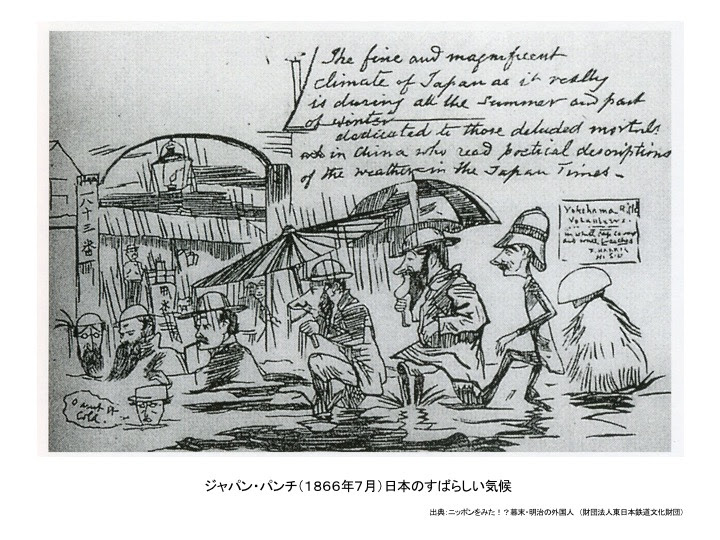 The fine and magnificent
climate of Japan as it really
is during all the summer and part
of winter
dedicated to those deluded mortals
in China who read poetical descriptions
of the weather in the Japan Times.
八十三番
Yokohama Rifle
Volunteers.
氷水
O aint it
Cold.
ジャパン・パンチ（1866年7月）日本のすばらしい気候
出典：ニッポンをみた！？幕末・明治の外国人 （財団法人東日本鉄道文化財団）